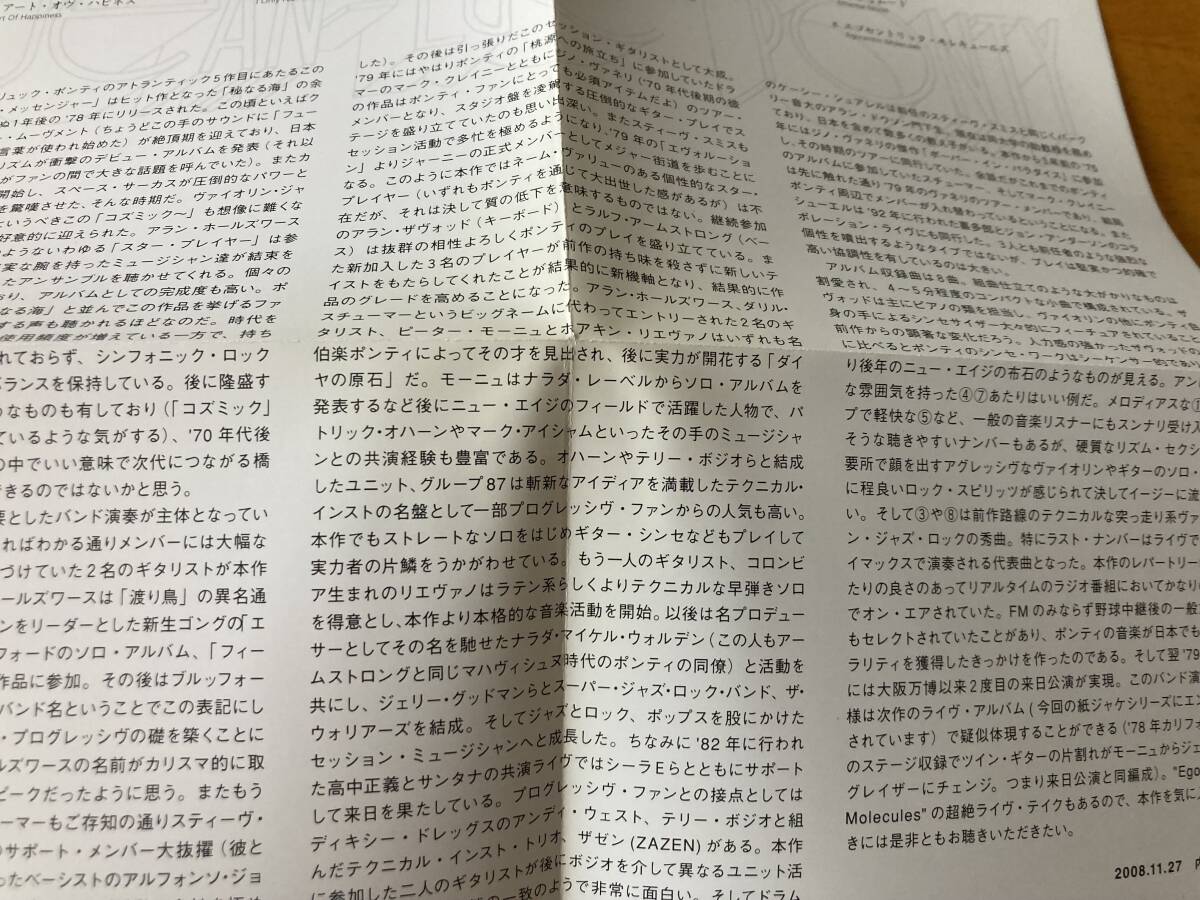 アート・オヴ・ハピネス
rt Of Happiness
リュック・ポンティのアトランティック5作目にあたるこの
ス・メッセンジャー」はヒット作となった「秘なる海」の余
ぬ1年後の'78年にリリースされた。この頃といえばク
・ムーヴメント（ちょうどこの手のサウンドに「フュー
言葉が使われ始めた）が絶頂期を迎えており、日本
リズムが衝撃のデビュー・アルバムを発表（それ以
がファンの間で大きな話題を呼んでいた）。またカ
開始し、スペース・サーカスが圧倒的なパワーと
を驚嘆させた、そんな時期だ。ヴァイオリン・ジャ
というべきこの「コズミック〜」も想像に難くな
好意的に迎えられた。アラン・ホールズワース
のようないわゆる「スター・プレイヤー」は参
実な腕を持ったミュージシャン達が結束を
たアンサンブルを聴かせてくれる。個々の
おり、アルバムとしての完成度も高い。ポ
なる海」と並んでこの作品を挙げるファ
する声も聴かれるほどなのだ。時代を
使用頻度が増えている一方で、持ち
れておらず、シンフォニック・ロック
バランスを保持している。後に隆盛す
うなものも有しており（「コズミック」
ているような気がする）、'70年代後
の中でいい意味で次代につながる橋
できるのではないかと思う。
要としたバンド演奏が主体となってい
ればわかる通りメンバーには大幅な
づけていた2名のギタリストが本作
ールズワースは「渡り鳥」の異名通
ンをリーダーとした新生ゴングの「エ
フォードのソロ・アルバム、「フィー
作品に参加。その後はブルッフォー
バンド名ということでこの表記にし
・プログレッシヴの礎を築くことに
ルズワースの名前がカリスマ的に取
ピークだったように思う。またもう
ーマーもご存知の通りスティーヴ・
のサポート・メンバー大抜擢（彼と
ったベーシストのアルフォンソ・ジョ
した）。その後は引っ張りだこのセッション・ギタリストとして大成。
'79年にはやはりポンティの「桃源への旅立ち」に参加していたドラ
マーのマーク・クレイニーとともにジノ・ヴァネリ（'70年代後期の彼
の作品はポンティ・ファンにとっても必須アイテムだよ）のツアー・
メンバーとなり、スタジオ盤を凌駕する圧倒的なギター・プレイでス
テージを盛り立てていたのも思い出深い。またスティーヴ・スミスも
セッション活動で多忙を極めるようになり、'79年の「エヴォルーショ
ン」よりジャーニーの正式メンバーとしてメジャー街道を歩むことに
なる。このように本作ではネーム・ヴァリューのある個性的なスター・
プレイヤー（いずれもポンティを通じて大出世した感があるが）は不
在だが、それは決して質の低下を意味するものではない。継続参加
のアラン・ザヴォッド（キーボード）とラルフ・アームストロング（ベー
ス）は抜群の相性よろしくポンティのプレイを盛り立てている。ま
た新加入した3名のプレイヤーが前作の持ち味を殺さずに新しいテ
イストをもたらしてくれたことが結果的に新機軸となり、結果的に作
品のグレードを高めることになった。アラン・ホールズワース、ダリル・
スチューマーというビッグネームに代わってエントリーされた2名のギ
タリスト、ピーター・モーニュとホアキン・リエヴァノはいずれも名
伯楽ポンティによってその才を見出され、後に実力が開花する「ダイ
ヤの原石」だ。モーニュはナラダ・レーベルからソロ・アルバムを
発表するなど後にニュー・エイジのフィールドで活躍した人物で、パ
トリック・オハーンやマーク・アイシャムといったその手のミュージシャ
ンとの共演経験も豊富である。オハーンやテリー・ボジオらと結成
したユニット、グループ87は斬新なアイディアを満載したテクニカル・
インストの名盤として一部プログレッシヴ・ファンからの人気も高い。
本作でもストレートなソロをはじめギター・シンセなどもプレイして
実力者の片鱗をうかがわせている。もう一人のギタリスト、コロンビ
ア生まれのリエヴァノはラテン系らしくよりテクニカルな早弾きソロ
を得意とし、本作より本格的な音楽活動を開始。以後は名プロデュー
サーとしてその名を馳せたナラダ・マイケル・ウォルデン（この人もアー
ムストロングと同じマハヴィシュヌ時代のポンティの同僚）と活動を
共にし、ジェリー・グッドマンらとスーパー・ジャズ・ロック・バンド、ザ・
ウォリアーズを結成。そしてジャズとロック、ポップスを股にかけた
セッション・ミュージシャンへと成長した。ちなみに'82年に行われ
た高中正義とサンタナの共演ライヴではシーラEらとともにサポート
して来日を果たしている。プログレッシヴ・ファンとの接点としては
ディキシー・ドレッグスのアンディ・ウェスト、テリー・ボジオと組
んだテクニカル・インスト・トリオ、ザゼン(ZAZEN)がある。本作
に参加した二人のギタリストが後にボジオを介して異なるユニット活
の一致のようで非常に面白い。そしてドラム
エゴセントリック・モレキュールズ
Egocentric Molecules
のケーシー・シュアレルは前任のスティーヴ・スミスと同じくバーク
リー音大のアラン・ドウソン門下生。
ポンティ周辺でメンバーが入れ替わっているということになる。また
シューエルは'92年に行われた喜多郎とジョン・アンダーソンのコラ
ボレーション・ライヴにも同行した。
個性を噴出するようなタイプではないが、プレイは堅実かつ的確で
高い協調性を有しているのは大きい。
アルバム収録曲は8曲。組曲仕立てのような大がかりなものは
割愛され、4〜5分程度のコンパクトな小曲で構成されている。ザ
ヴォッドは主にピアノの類を担当し、ヴァイオリンの他にポンティ自
身の手によるシンセサイザー大々的にフィーチュアされていること
前作からの顕著な変化だろう。
に比べるとポンティのシンセ・ワークはシーケンサー的であり
り後年のニュー・エイジの布石のようなものが見える。アン
な雰囲気を持った④⑦あたりはいい例だ。メロディアスな①
プで軽快な⑤など、一般の音楽リスナーにもスンナリ受け入
そうな聴きやすいナンバーもあるが、硬質なリズム・セクシ
要所で顔を出すアグレッシヴなヴァイオリンやギターのソロ・
に程良いロック・スピリッツが感じられて決してイージーに流
い。そして③や⑧は前作路線のテクニカルな突っ走り系ヴァ
ン・ジャズ・ロックの秀曲。特にラスト・ナンバーはライヴで
イマックスで演奏される代表曲となった。本作のレパートリー
たりの良さのあってリアルタイムのラジオ番組においてかなり
でオン・エアされていた。FMのみならず野球中継後の一般
もセレクトされていたことがあり、ポンティの音楽が日本でも
ラリティを獲得したきっかけを作ったのである。そして翌'79
には大阪万博以来2度目の来日公演が実現。このバンド演
様は次作のライヴ・アルバム（今回の紙ジャケシリーズにエ
されています）で疑似体現することができる（'78年カリフォ
のステージ収録でツイン・ギターの片割れがモーニュからジェ
グレイザーにチェンジ。つまり来日公演と同編成）。"Ego
Molecules"の超絶ライヴ・テイクもあるので、本作を気に入
きには是非ともお聴きいただきたい。
2008.11.27